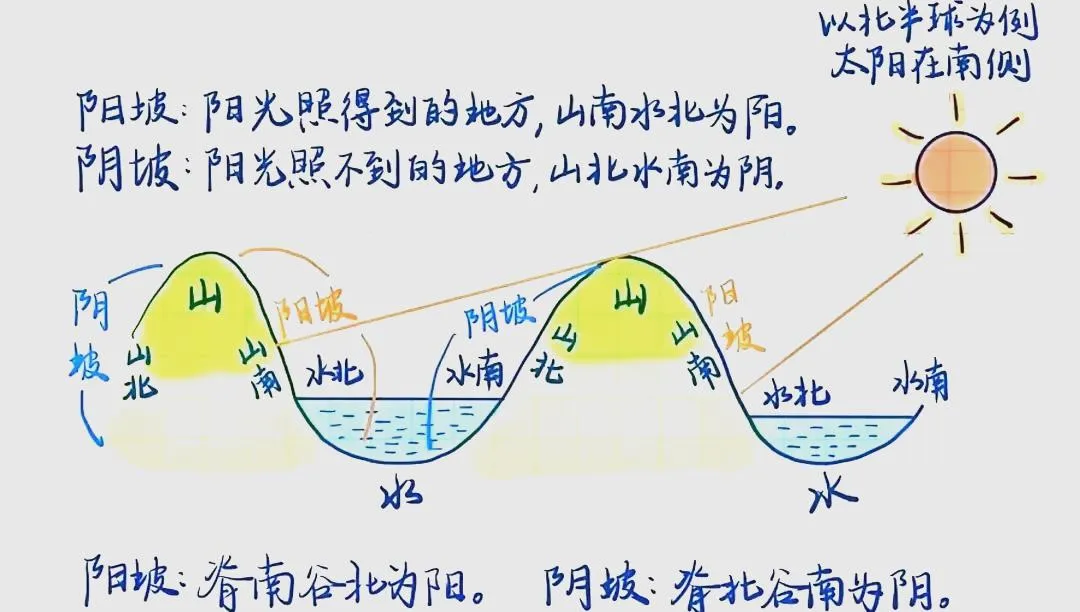 以北半球为例
太阳在南侧
阳坡：阳光照得到的地方，山南水北为阳。
阴坡：阳光照不到的地方，山北水南为阴.
阴坡
山
山北
山南
阳坡
水北
阴坡
水南
山
山北
山南
阳坡
水北
水南
水
水
阳坡：脊南谷北为阳。 阴坡：脊北谷南为阴。